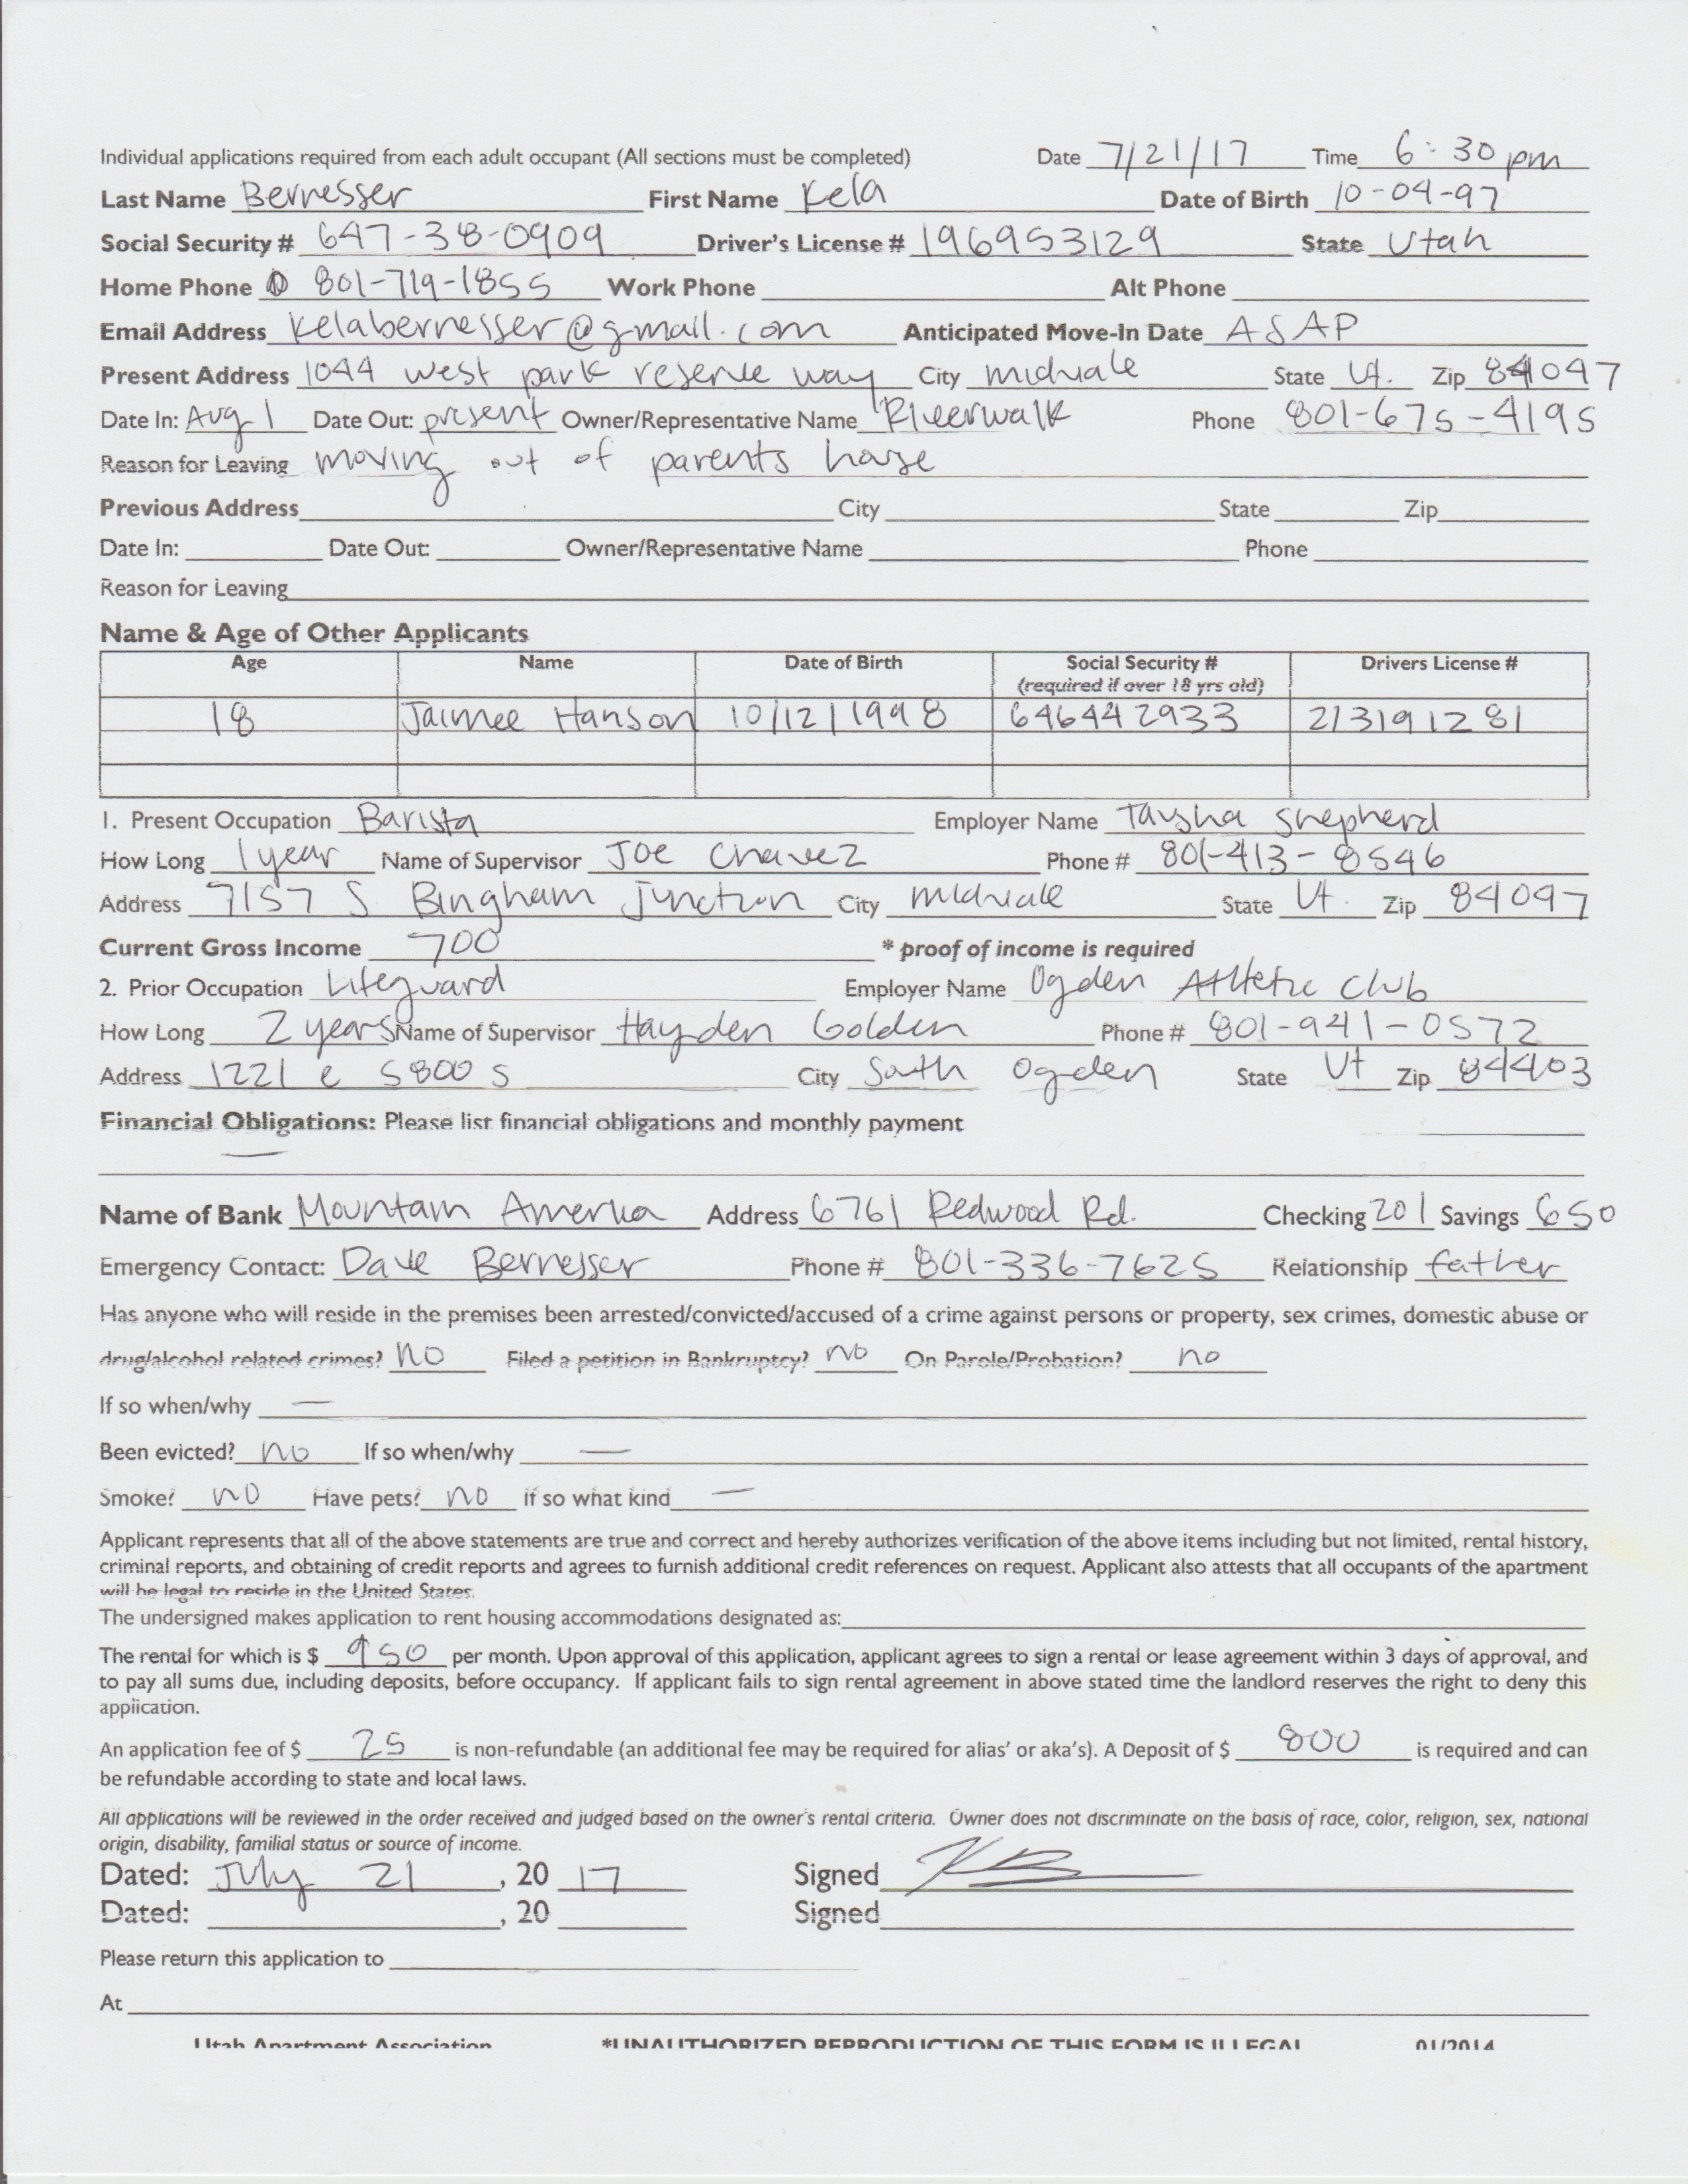 Individual applications required from each adult occupant (All sections must be completed) Date 7/21/17 Time 6:30 pm
Last Name Bernesser First Name Kela Date of Birth 10-04-97
Social Security # 647-38-0909 Driver's License # 196953129 State Utah
Home Phone 801-719-1855 Work Phone Alt Phone
Email Address kelabernesser@gmail.com Anticipated Move-In Date ASAP
Present Address 1044 west park reserve way City midvale State Ut. Zip 84047
Date In: Aug 1 Date Out: present Owner/Representative Name Riverwalk Phone 801-675-4195
Reason for Leaving moving out of parents house
Previous Address City State Zip
Date In: Date Out: Owner/Representative Name Phone
Reason for Leaving
Name & Age of Other Applicants
Age Name Date of Birth Social Security # Drivers License #
(required if over 18 yrs old)
18 Jaimee Hanson 10/12/1998 646442933 213191281
1. Present Occupation Barista Employer Name Taysha Shepherd
How Long 1 year Name of Supervisor Joe Chavez Phone # 801-413-8546
Address 7157 S Bingham Junction City midvale State Ut. Zip 84047
Current Gross Income 700 * proof of income is required
2. Prior Occupation Lifeguard Employer Name Ogden Athletic Club
How Long 2 years Name of Supervisor Hayden Golden Phone # 801-941-0572
Address 1221 e 5800 s City South Ogden State Ut Zip 84403
Financial Obligations: Please list financial obligations and monthly payment
—
Name of Bank Mountain America Address 6761 Redwood Rd. Checking 201 Savings 650
Emergency Contact: Dave Bernesser Phone # 801-336-7625 Relationship father
Has anyone who will reside in the premises been arrested/convicted/accused of a crime against persons or property, sex crimes, domestic abuse or
drug/alcohol related crimes? no Filed a petition in Bankruptcy? no On Parole/Probation? no
If so when/why —
Been evicted? no If so when/why —
Smoke? no Have pets? no If so what kind —
Applicant represents that all of the above statements are true and correct and hereby authorizes verification of the above items including but not limited, rental history,
criminal reports, and obtaining of credit reports and agrees to furnish additional credit references on request. Applicant also attests that all occupants of the apartment
will be legal to reside in the United States.
The undersigned makes application to rent housing accommodations designated as:
The rental for which is $ 950 per month. Upon approval of this application, applicant agrees to sign a rental or lease agreement within 3 days of approval, and
to pay all sums due, including deposits, before occupancy. If applicant fails to sign rental agreement in above stated time the landlord reserves the right to deny this
application.
An application fee of $ 25 is non-refundable (an additional fee may be required for alias' or aka's). A Deposit of $ 800 is required and can
be refundable according to state and local laws.
All applications will be reviewed in the order received and judged based on the owner's rental criteria. Owner does not discriminate on the basis of race, color, religion, sex, national
origin, disability, familial status or source of income.
Dated: July 21, 20 17 Signed KB
Dated: , 20 Signed
Please return this application to
At
Utah Apartment Association *UNAUTHORIZED REPRODUCTION OF THIS FORM IS ILLEGAL 01/2014